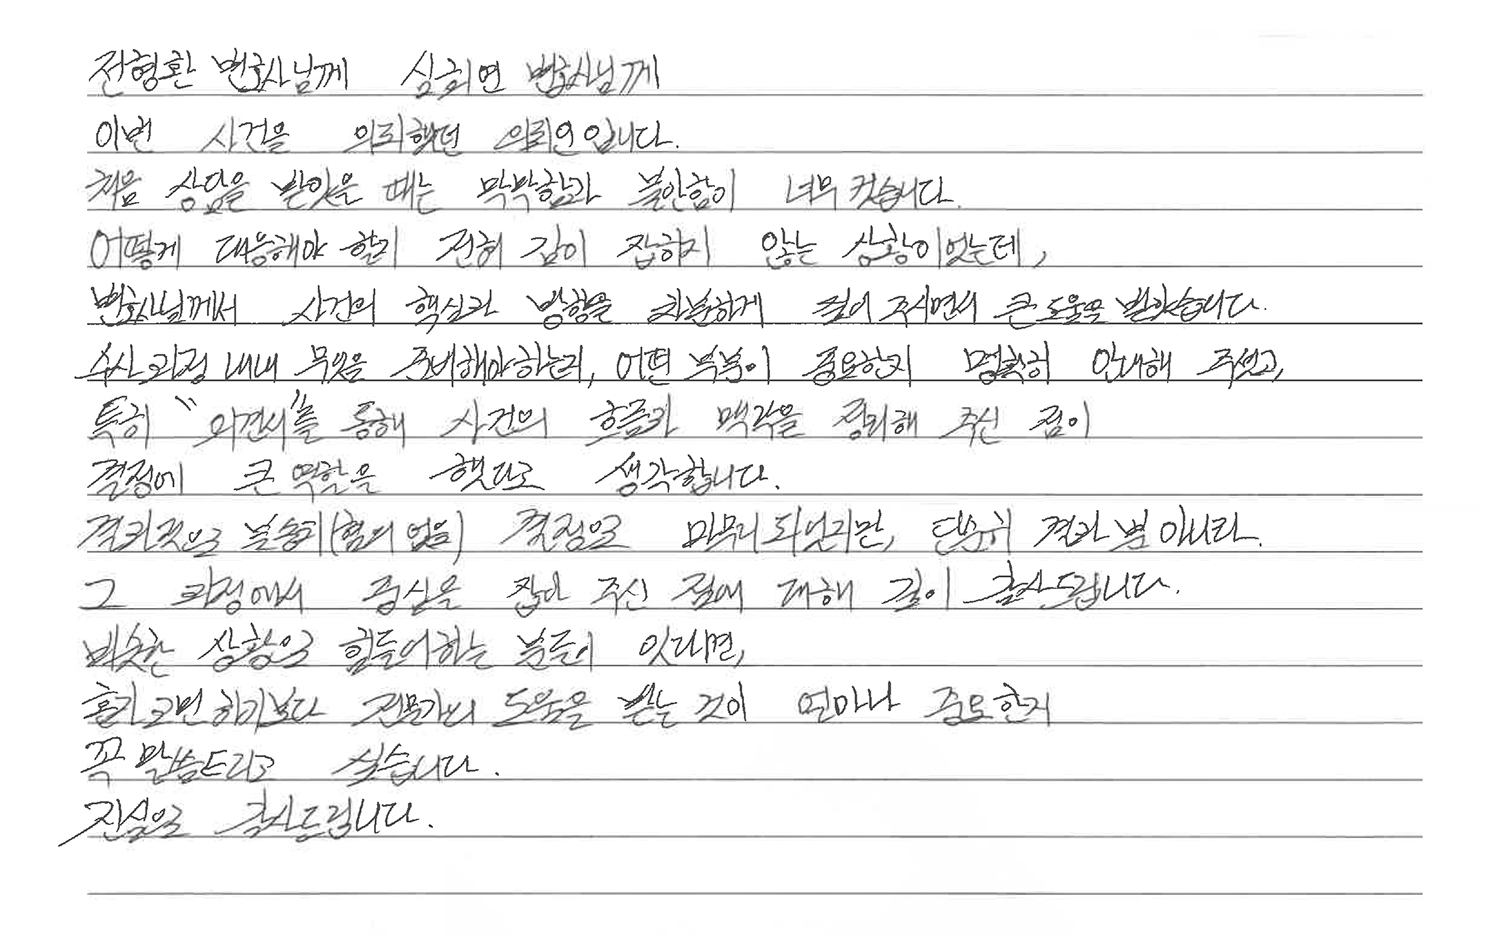 전형환 변호사님께 심희연 변호사님께
이번 사건을 의뢰했던 의뢰인입니다.
처음 상담을 받앗을 때는 막막함과 불안함이 너무 컷습니다.
어떻게 대응해야 할지 전혀 감이 잡히지 않는 상황이었는데,
변호사님께서 사건의 핵심과 방향을 차분하게 짚어 주시면서 큰 도움을 받았습니다.
수사 과정 내내 무엇을 준비해야하는지, 어떤 부분이 중요한지 명확히 안내해 주셨고,
특히 "의견서"를 통해 사건의 흐름과 맥락을 정리해 주신 점이
결정에 큰 역할을 햇다고 생각합니다.
결과적으로 불송치(혐의 없음) 결정으로 마무리 되었지만, 단순히 결과 뿐 아니라.
그 과정에서 중심을 잡아 주신 점에 대해 깊이 감사드립니다.
비슷한 상황으로 힘들어하는 분들이 잇다면,
혼자 고민 하기보다 전문가의 도움을 받는 것이 얼마나 중요한지
꼭 말씀드리고 싶습니다.
진심으로 감사드립니다.